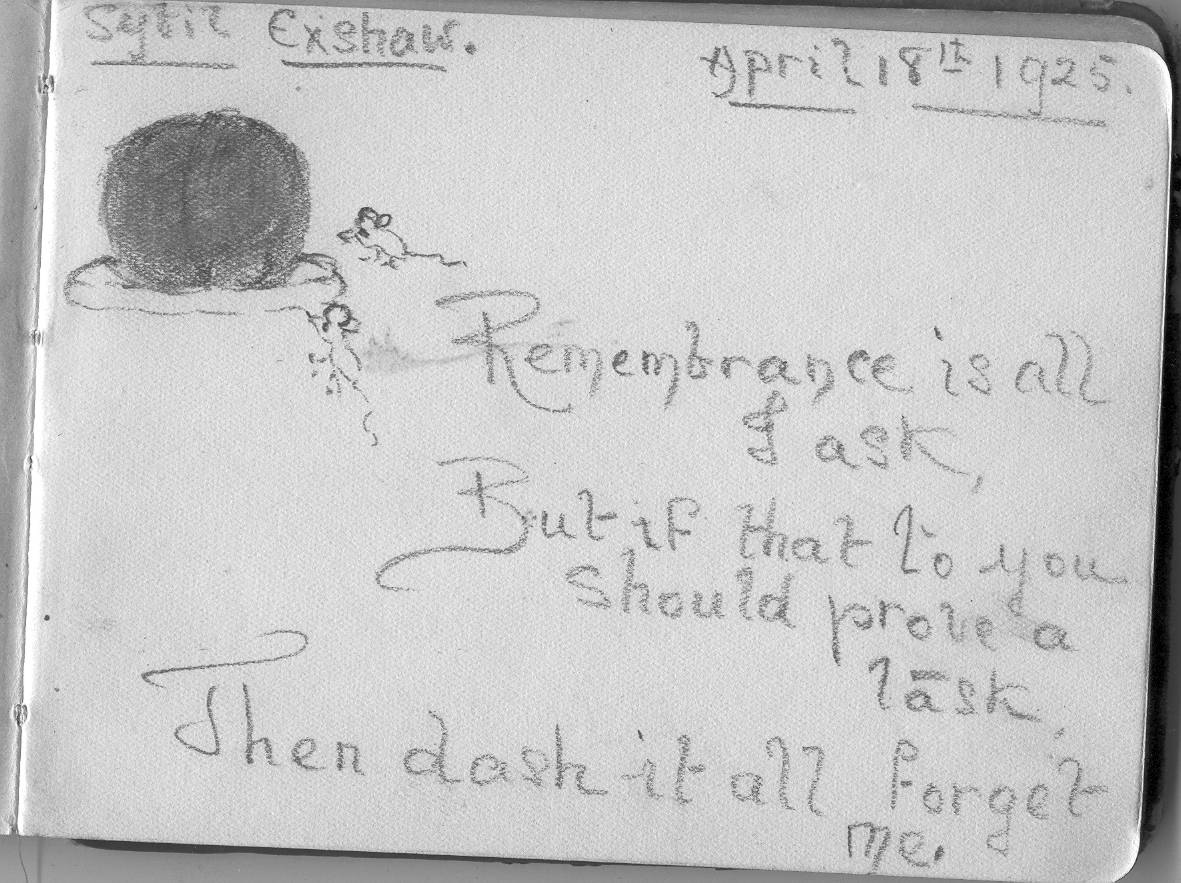 Sybil Exshaw.
April 18th 1925.
Remembrance is all
I ask,
But if that to you
should prove a
task,
Then dash it all forget
me.